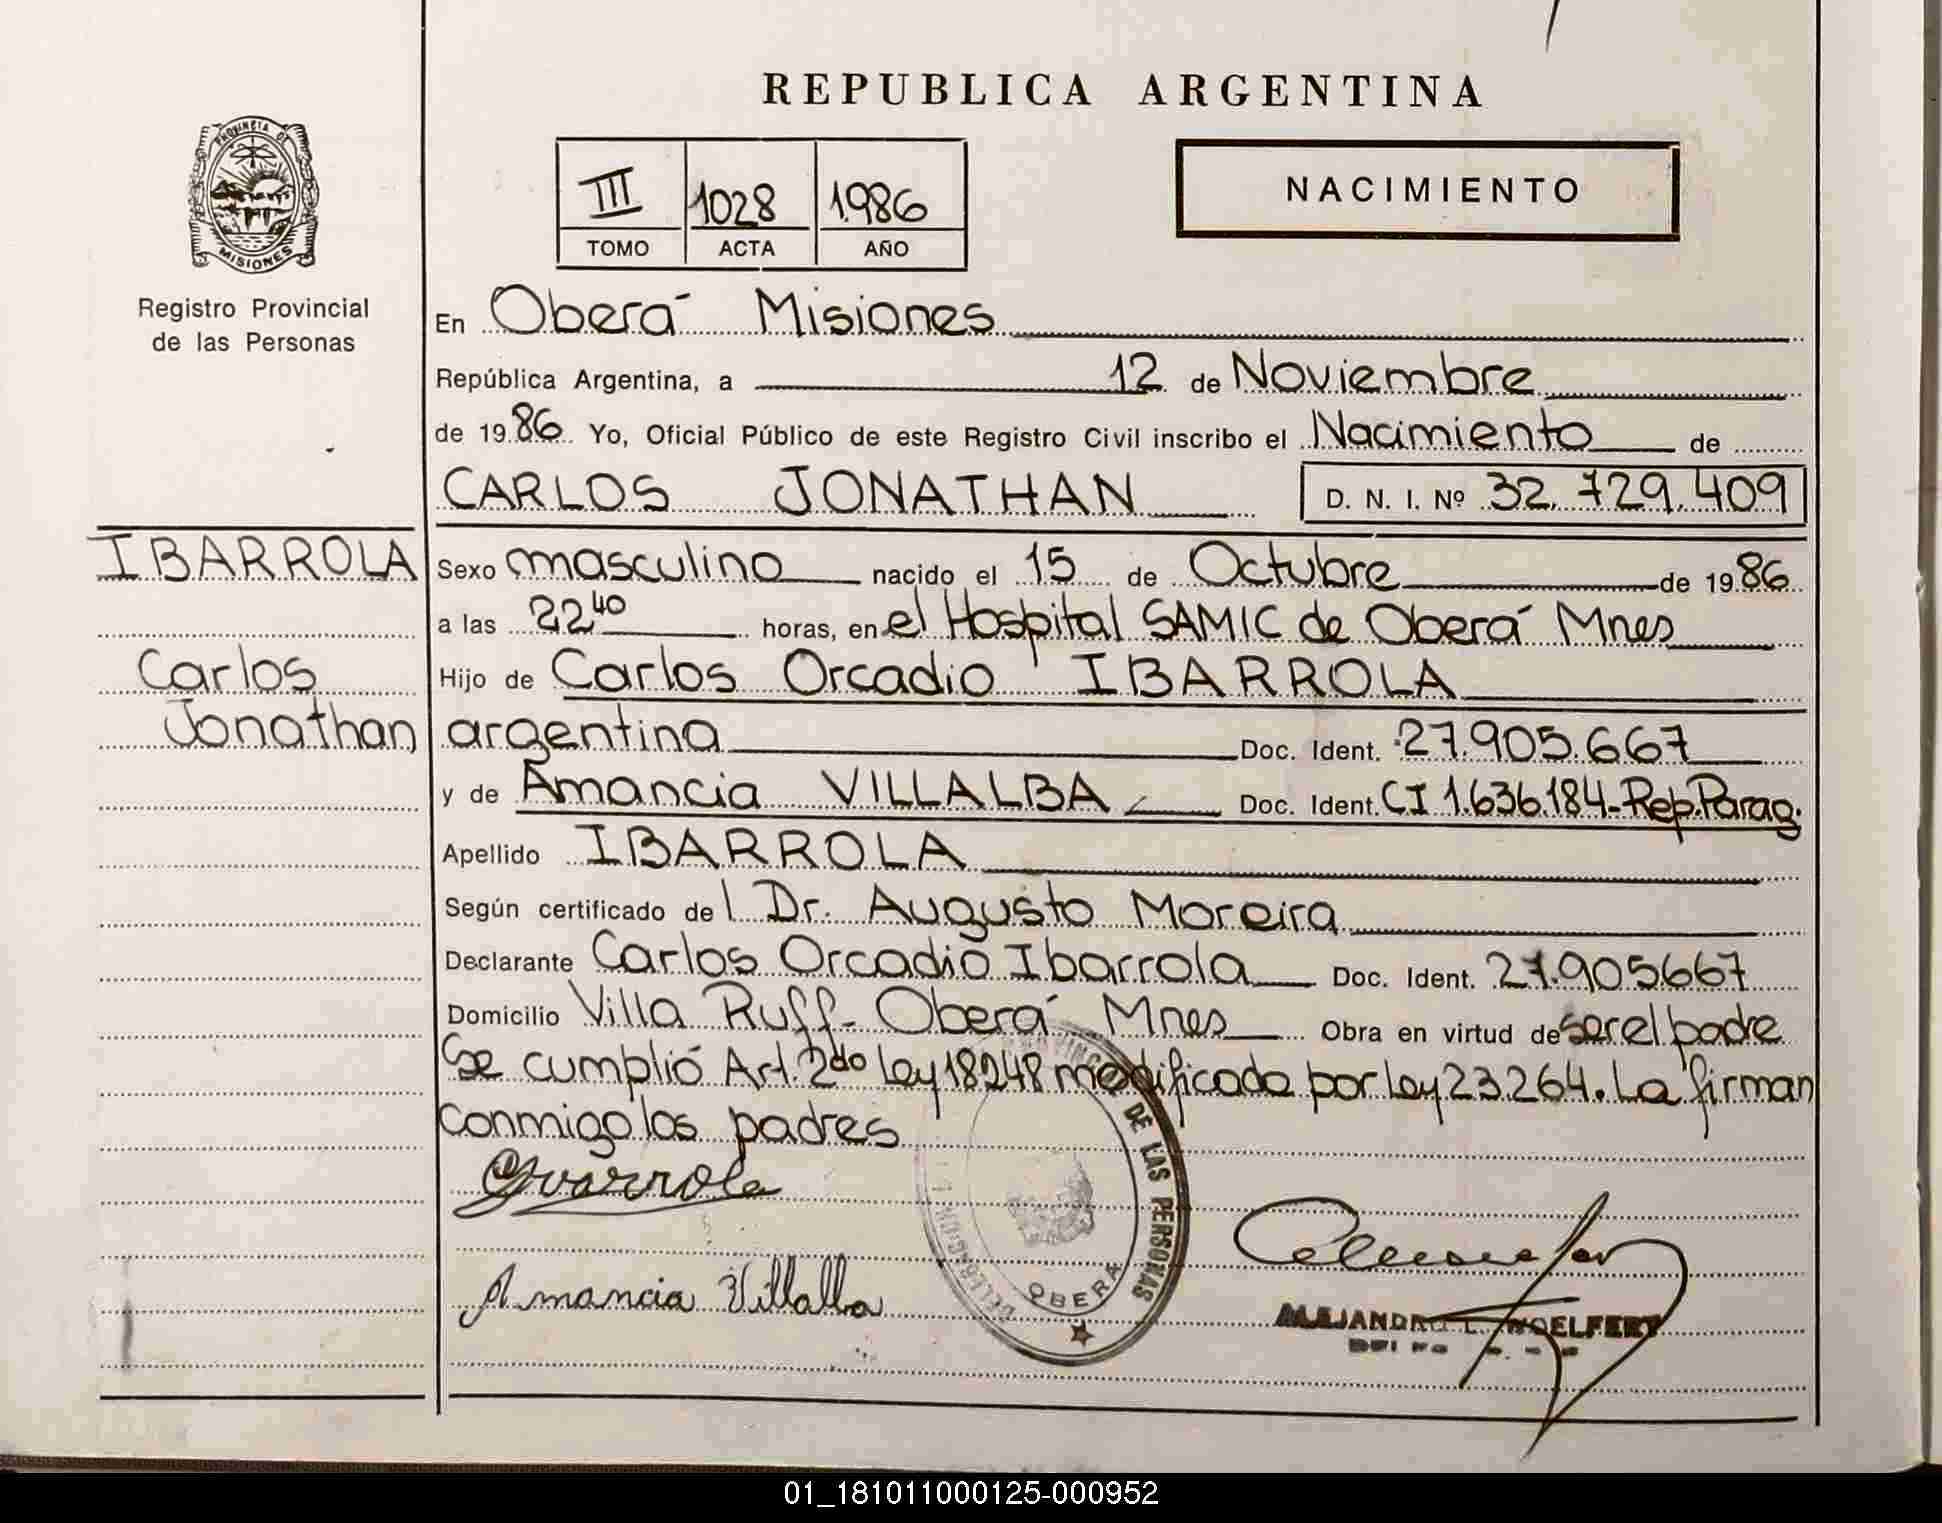 REPUBLICA ARGENTINA
PROVINCIA DE
MISIONES
Registro Provincial
de las Personas
III 1028 1.986
TOMO ACTA AÑO
NACIMIENTO
En Oberá Misiones
República Argentina, a 12 de Noviembre
de 1986 Yo, Oficial Público de este Registro Civil inscribo el Nacimiento de
CARLOS JONATHAN D. N. I. Nº 32.729.409
IBARROLA
Carlos
Jonathan
Sexo masculino nacido el 15 de Octubre de 1986
a las 22 40 horas, en el Hospital SAMIC de Oberá Mnes
Hijo de Carlos Orcadio IBARROLA
argentina Doc. Ident. 27.905.667
y de Amancia VILLALBA Doc. Ident. CI 1.636.184-Rep.Parag.
Apellido IBARROLA
Según certificado del Dr. Augusto Moreira
Declarante Carlos Orcadio Ibarrola Doc. Ident. 27.905667
Domicilio Villa Ruff- Oberá Mnes Obra en virtud de ser el padre
Se cumplió Art. 2do Ley 18248 modificada por Ley 23.264. La firman
conmigo los padres
Amancia Villalba
DE LAS PERSONAS
DELEGACION
OBERA
ALEJANDRO L. WOELFERT
01_181011000125-000952